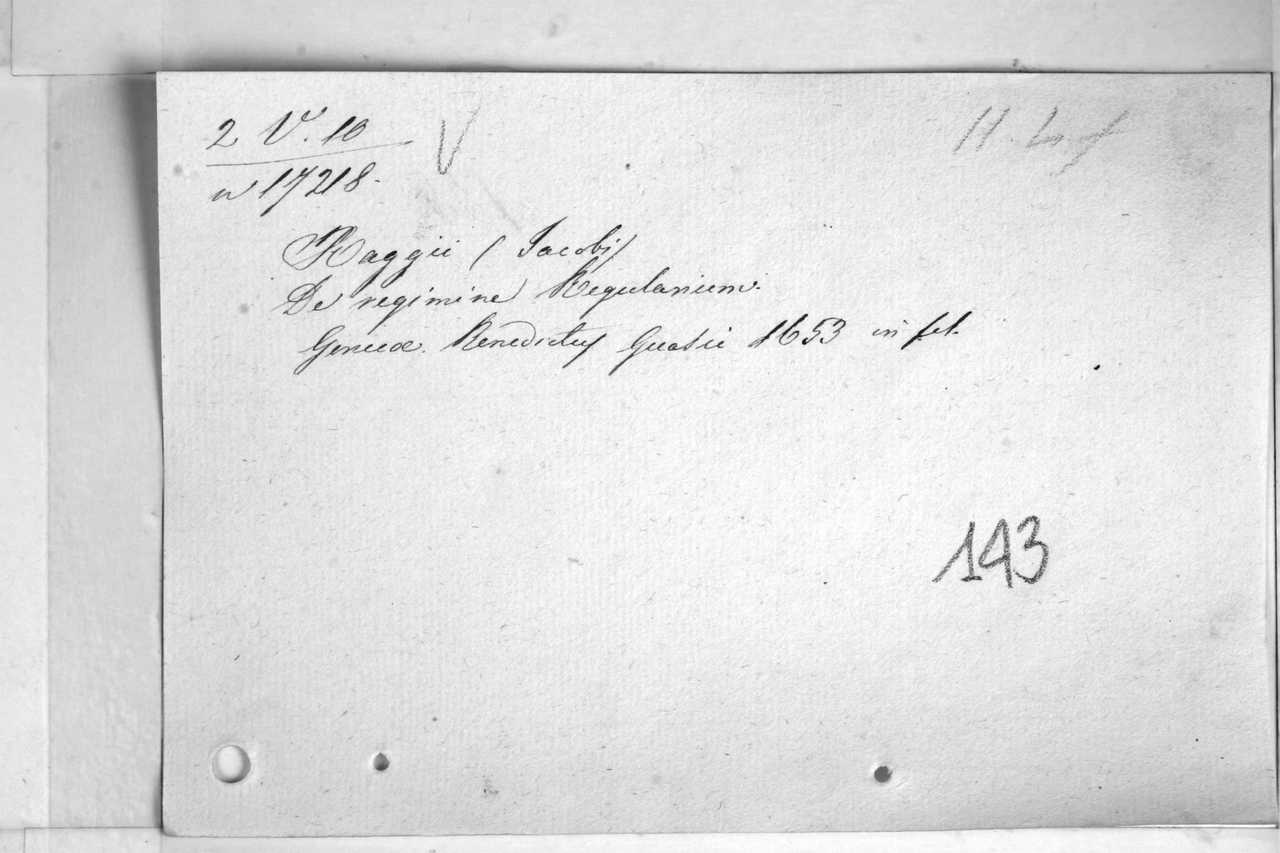 2 V. 10 V
n 17218.
Raggii (Jacobi)
De regimine Regularium.
Genuæ. Benedictus Guasii 1653 in fol.
143